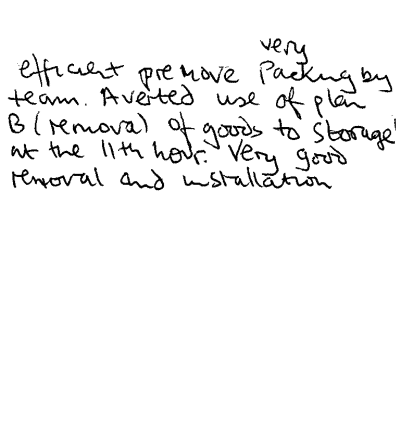 very
efficient premove Packing by
team. Averted use of plan
B (removal) of goods to Storage
at the 11th hour. Very good
removal and installation